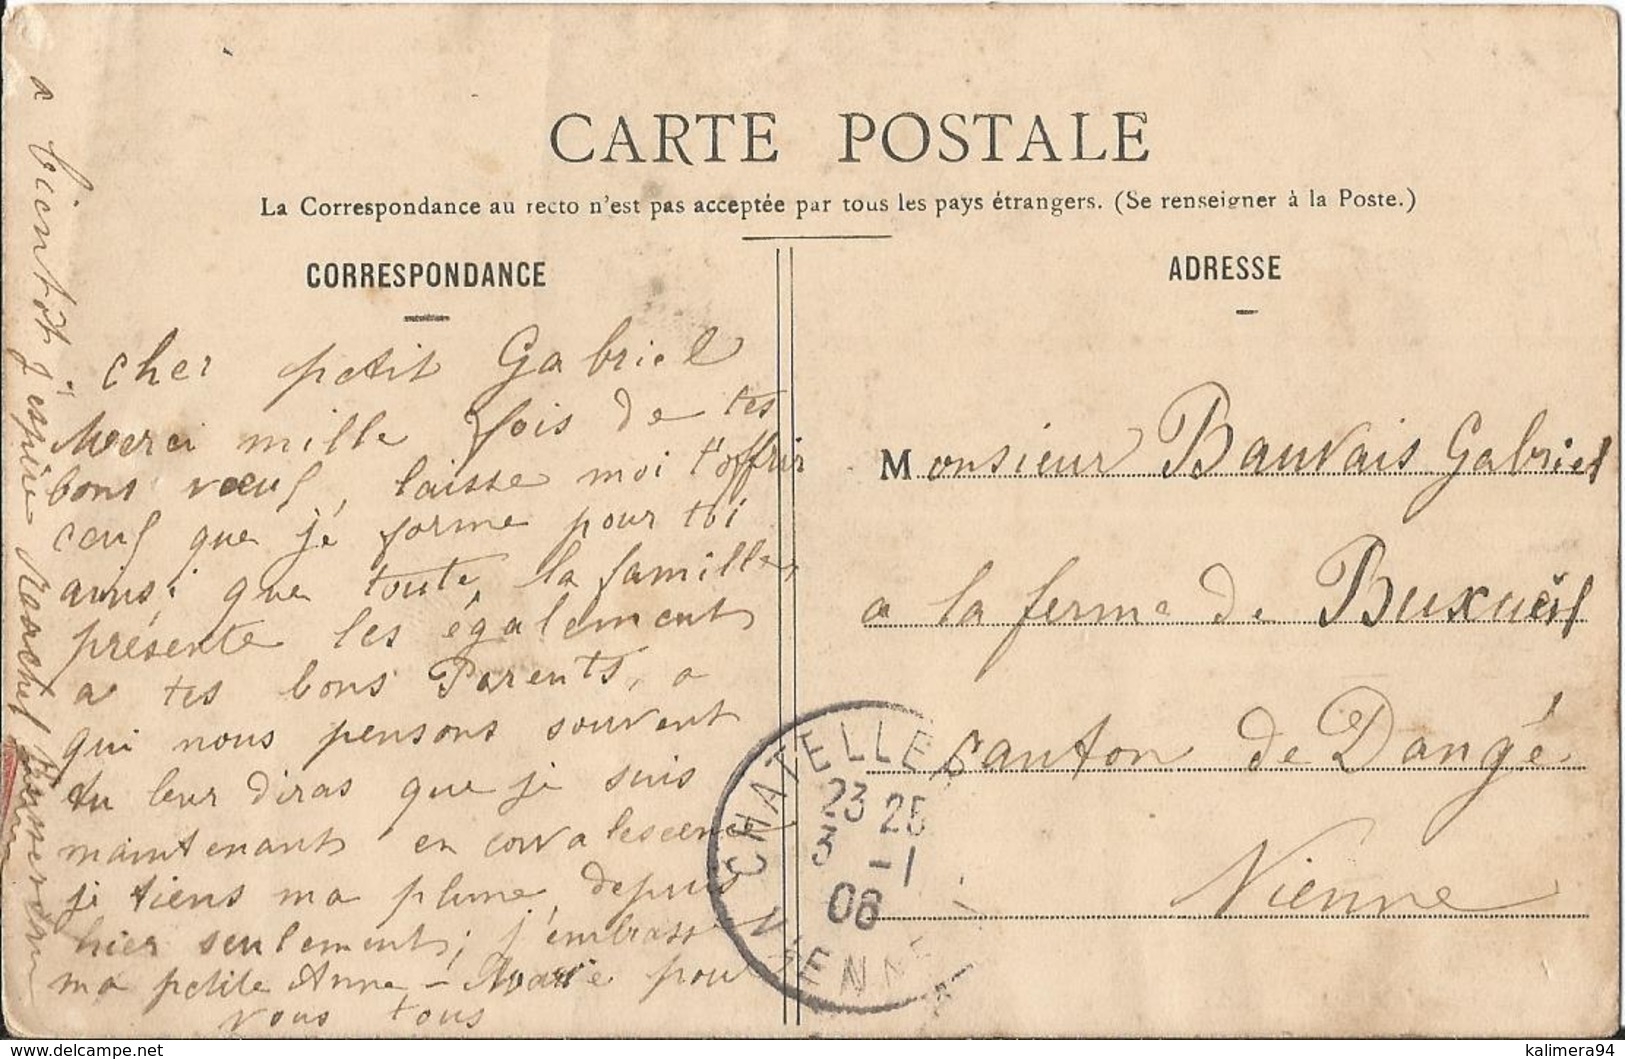 CARTE POSTALE
La Correspondance au recto n'est pas acceptée par tous les pays étrangers. (Se renseigner à la Poste.)
CORRESPONDANCE
cher petit Gabriel
Merci mille fois de tes
bons vœux, laisse moi t'offrir
ceux que je forme pour toi
ainsi que toute la famille,
présente les égalements
a tes bons Parents, a
qui nous pensons souvent
tu leur diras que je suis
maintenant en convalescence
je tiens ma plume, depuis
hier seulement; j'embrass
ma petite Anne-Marie pour
vous tous
a bientôt j'espère
ADRESSE
Monsieur Bauvais Gabriel
a la ferme de Buxueil
canton de Dangé
Vienne
CHATELLE
23 25
3 -1
08
VIENNE
delcampe.net
kalimera94